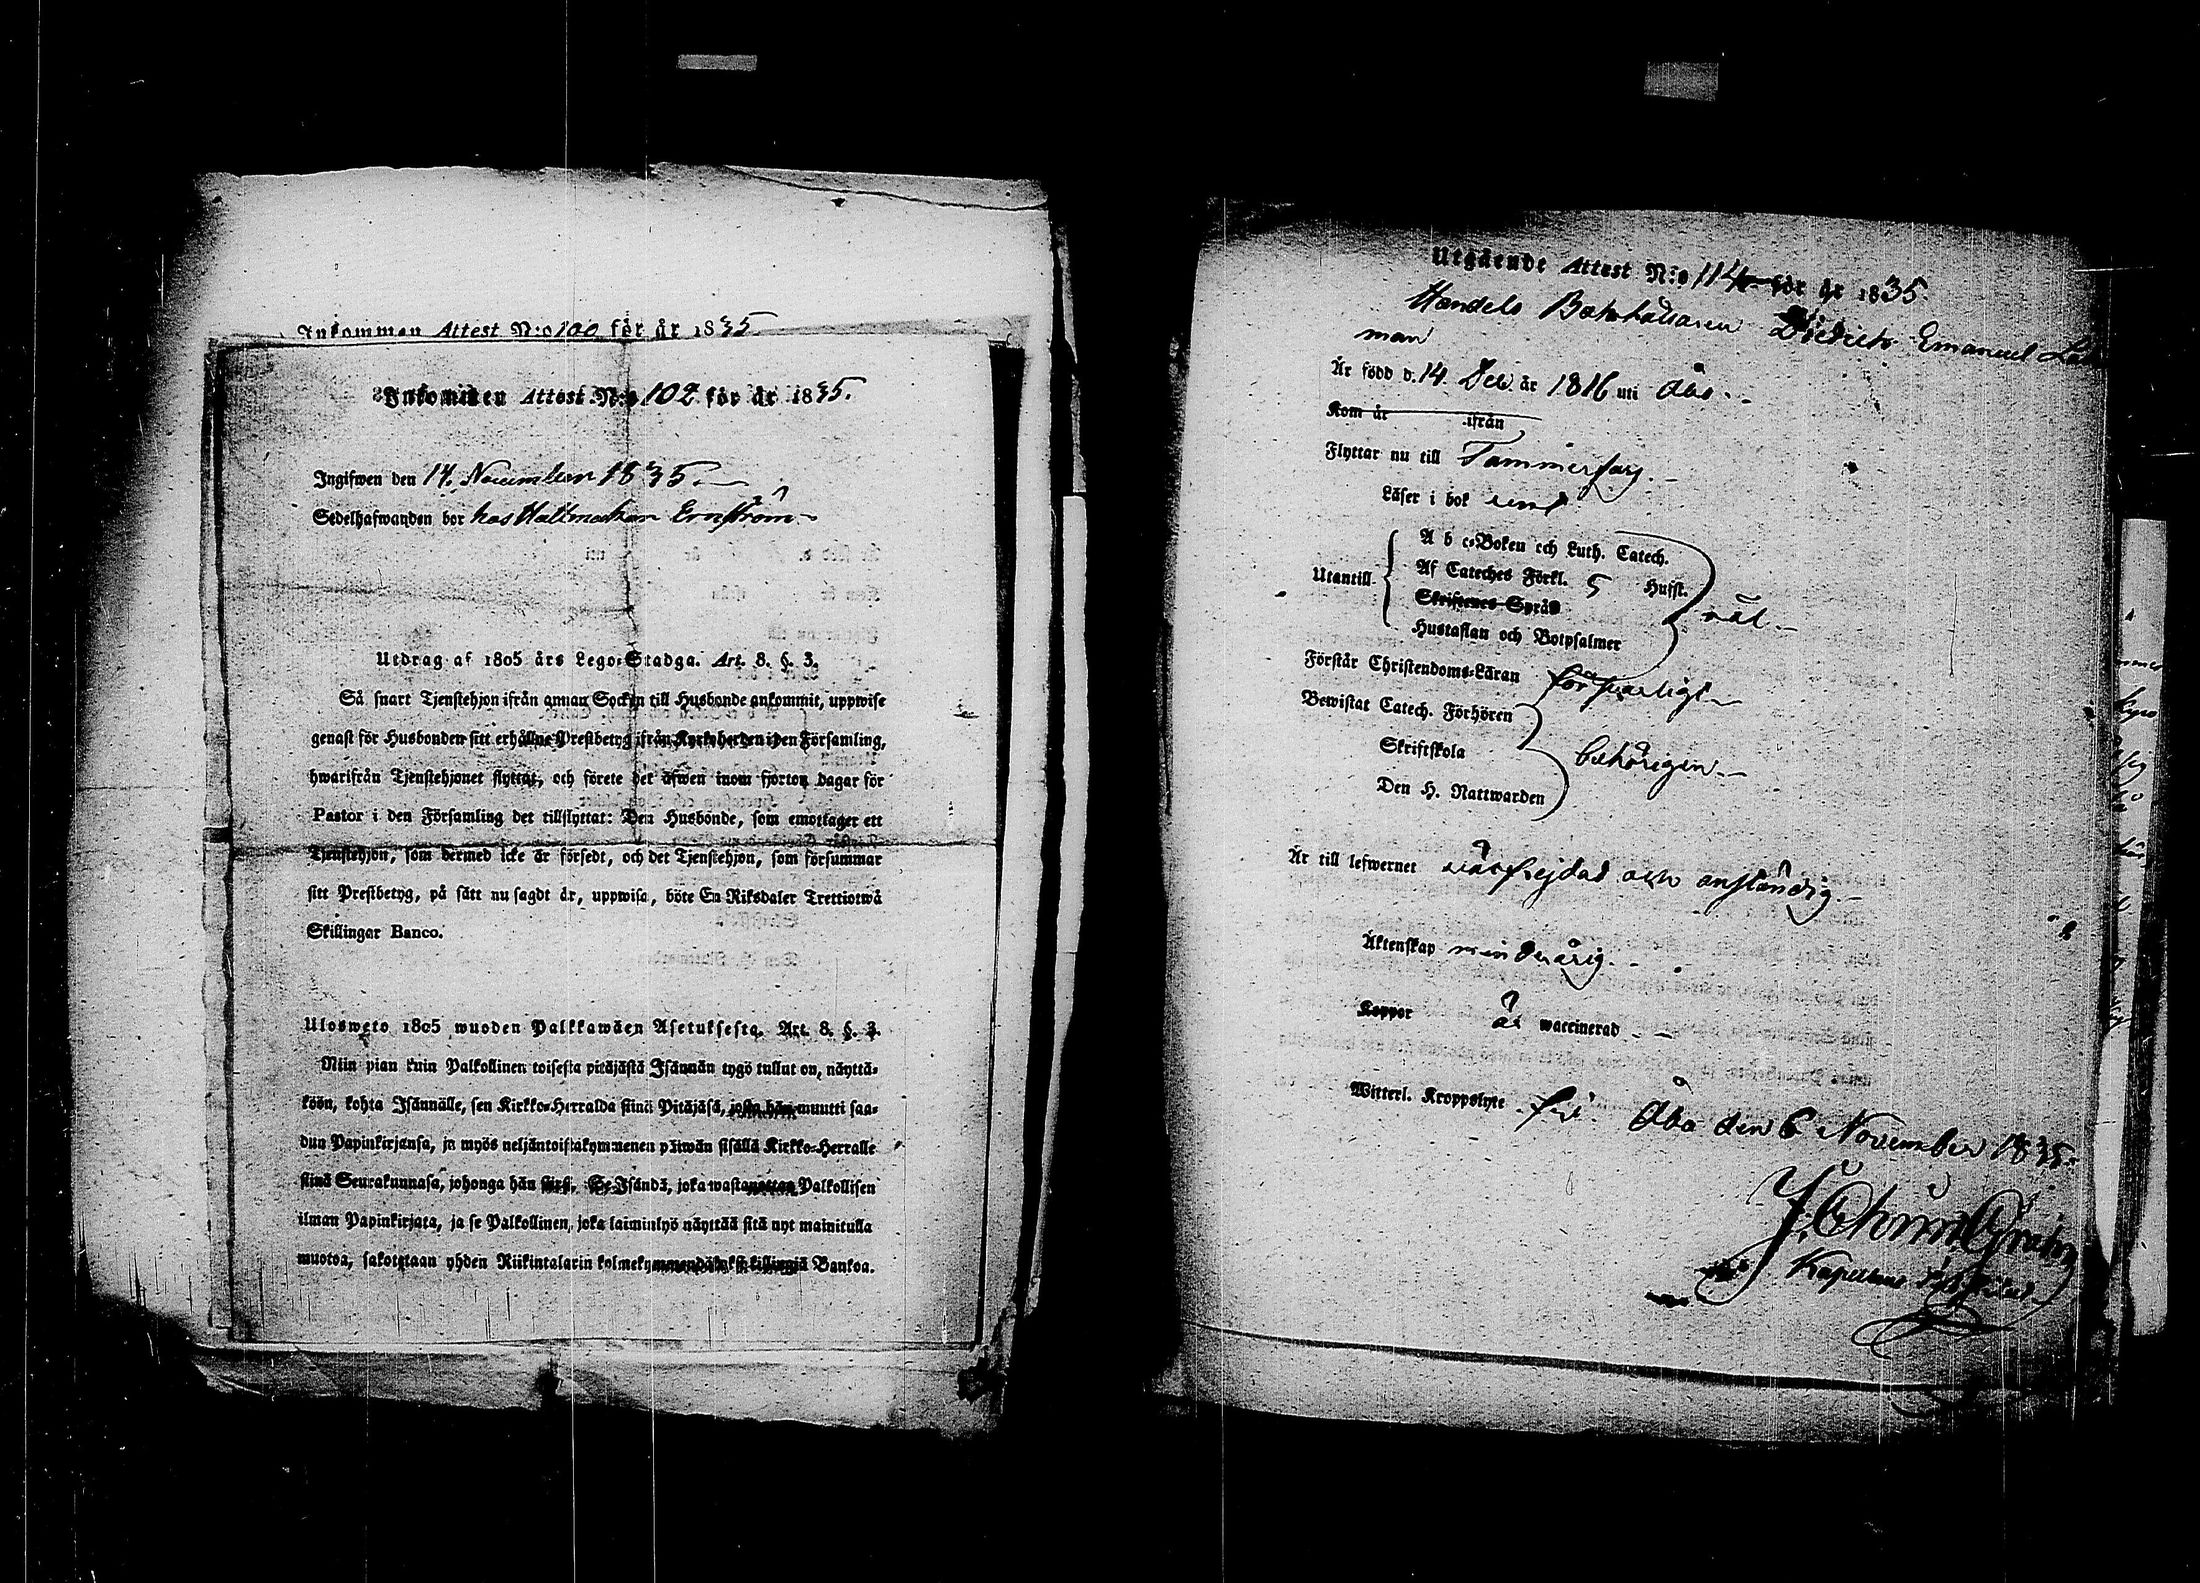 Inkommen Attest N:o 100 för år 1835
Inkommen Attest N:o 102 för år 1835.
Ingifwen den 14. November 1835.
Sedelhafwanden bor hos Hattmakar Ernström
Utdrag af 1805 års Lego-Stadga. Art. 8. §. 3.
Så snart Tjenstehjon ifrån annan Socken till Husbonde ankommit, uppwise
genast för Husbonden sitt erhållne Prestbetyg ifrån Kyrkoherden i den Församling,
hwarifrån Tjenstehjonet flyttat, och förete det äfwen inom fjorton dagar för
Pastor i den Församling det tillflyttat: Den Husbonde, som emottager ett
Tjenstehjon, som dermed icke är försedt, och det Tjenstehjon, som försummar
sitt Prestbetyg, på sätt nu sagdt är, uppwisa, böte En Riksdaler Trettiotwå
Skillingar Banco.
Ulosweto 1805 wuoden Palkkawäen Asetuksesta. Art. 8. §. 3.
Niin pian kuin Palkollinen toisesta pitäjästä Isännän tygö tullut on, näyttä-
köön, kohta Isännälle, sen Kirkko-Herralda siinä Pitäjäsä, josta hän muutti saa-
dun Papinkirjansa, ja myös neljäntoistakymmenen päiwän sisällä Kirkko-Herralle
siinä Seurakunnasa, johonga hän siirsi. Se Isändä, joka wastanottaa Palkollisen
ilman Papinkirjata, ja se Palkollinen, joka laiminlyö näyttää sitä nyt mainitulla
muotoa, sakotetaan yhden Riikintalarin kolmekymmendäkaksi killingiä Bankoa.
Utgående Attest N:o 114 för år 1835.
Handels Bokhållaren Diedrich Emanuel
man
Är född d. 14. Dec. år 1816 uti Åbo.
Kom år ifrån
Flyttar nu till Tammerfors.
Läser i bok rent
Utantill
A b c-Boken och Luth. Catech.
Af Cateches Förkl. 5 Hufst.
Skriftenes Språk
Hustaflan och Botpsalmer
väl.
Förstår Christendoms-Läran försvarligt
Bewistat Catech. Förhören
Skriftskola
Den H. Nattwarden
behörigen.
Är till lefwernet välfrejdad och anständig.
Äktenskap minderårig.
Koppor är waccinerad
Witterl. Kroppslyte fri. Åbo den 6 November 1835.
Kapellans